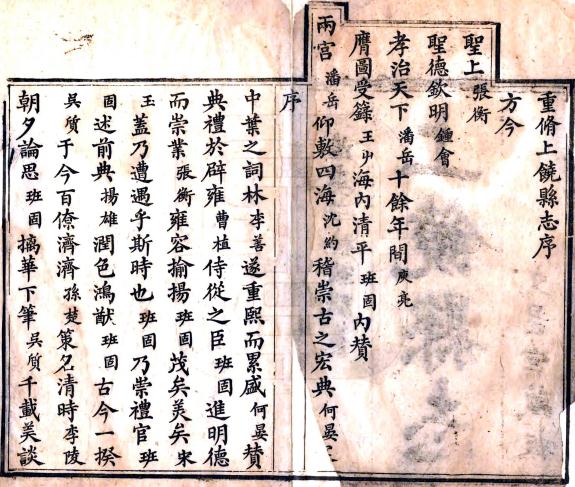 重脩上饒縣志序
方今
聖上張衡
聖德欽明鍾會
孝治天下潘岳十餘年間庾亮
膺圖受籙王屮海內清平班固內贊
兩宮潘岳仰敷四海沈約稽崇古之宏典何晏
序
中葉之詞林李善遂重熙而累盛何晏贊
典禮於辟雍曹植侍從之臣班固進明德
而崇業張衡雍容揄揚班固茂矣美矣宋
玉蓋乃遭遇乎斯時也班固乃崇禮官班
固述前典揚雄潤色鴻猷班固古今一揆
吳質于今百僚濟濟孫楚策名清時李陵
朝夕論思班固摛華下筆吳質千載美談